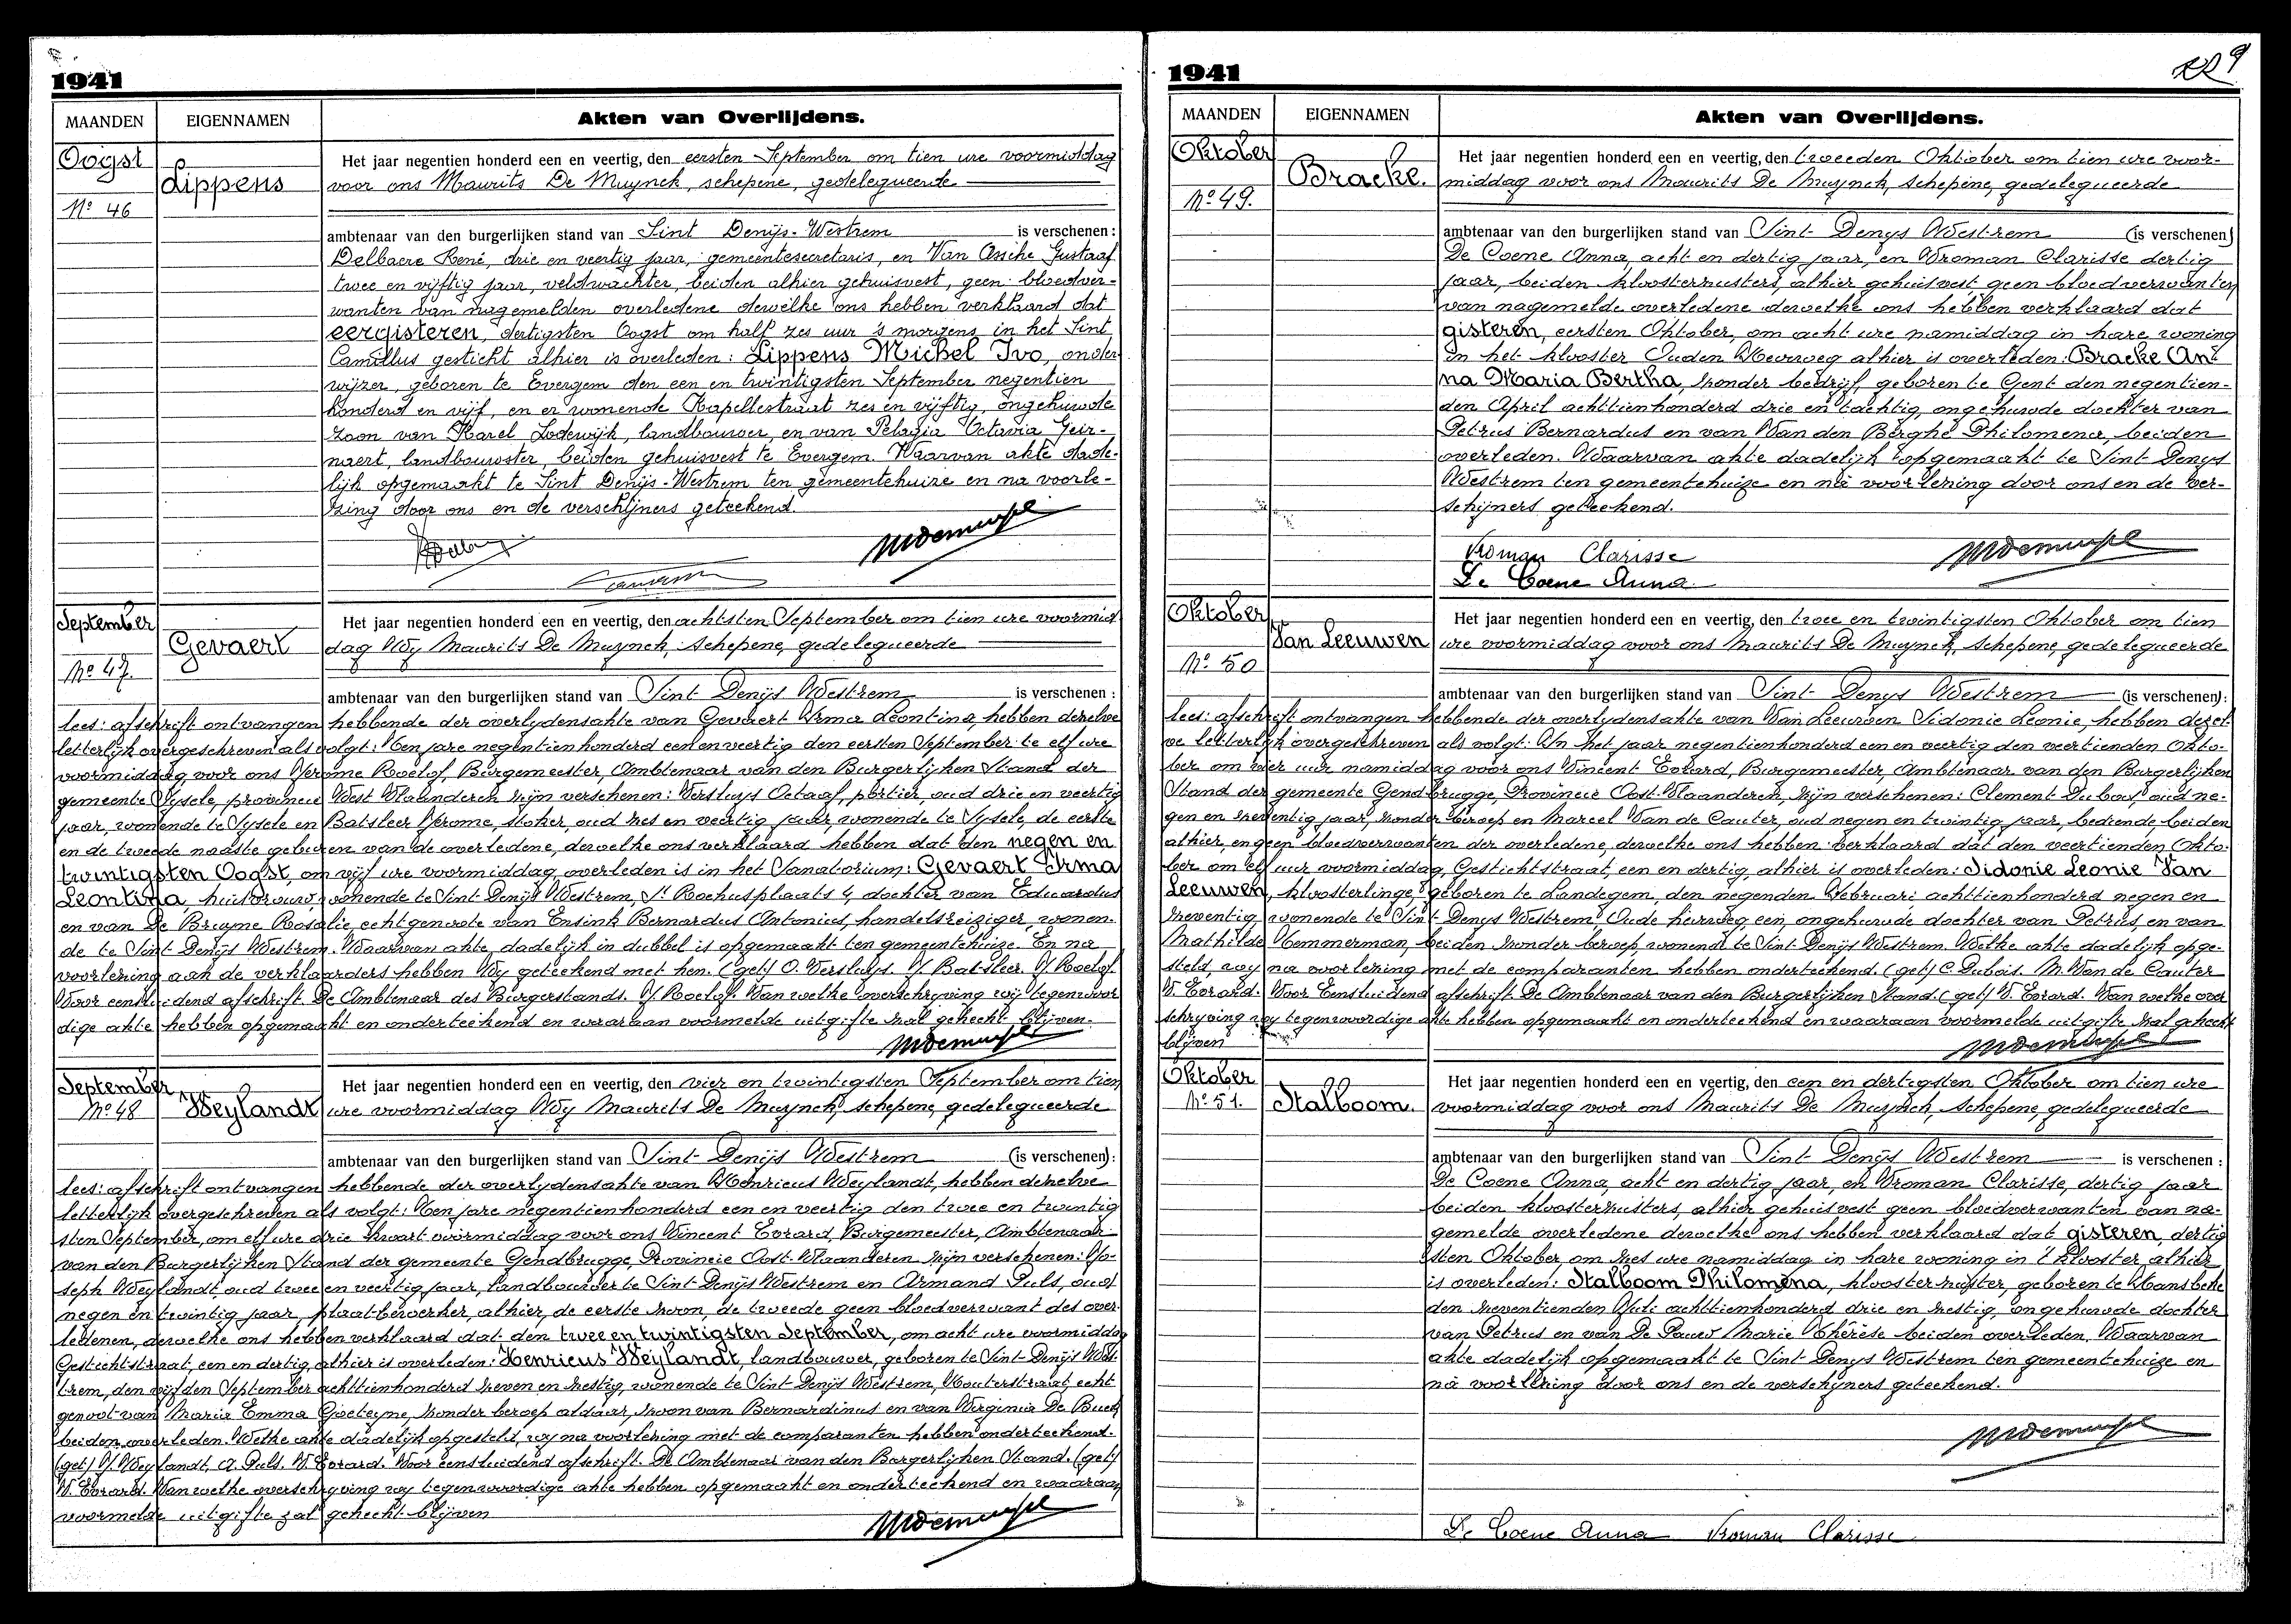 1941
MAANDEN EIGENNAMEN Akten van Overlijdens.
Oogst
Lippens
No 46
Het jaar negentien honderd een en veertig, den eersten September om tien ure voormiddag
voor ons Maurits De Muynck, schepene, gedelegueerde
ambtenaar van den burgerlijken stand van Sint Denijs-Westrem is verschenen:
Delbaere René, drie en veertig jaar, gemeentesecretaris, en Van Assche Gustaaf
twee en vijftig jaar, veldwachter, beiden alhier gehuisvest, geen bloedver-
wanten van nagemelden overledene dewelke ons hebben verklaard dat
eergisteren, dertigsten Oogst om half zes uur 's morgens in het Sint
Camillus gesticht alhier is overleden: Lippens Michel Ivo, onder-
wijzer, geboren te Evergem den een en twintigsten September negentien
honderd en vijf, en er wonende Kapellestraat zes en vijftig, ongehuwde
zoon van Karel Lodewijk, landbouwer, en van Pelagia Octavia Geir-
naert, landbouwster, beiden gehuisvest te Evergem. Waarvan akte dade-
lijk opgemaakt te Sint Denijs-Westrem ten gemeentehuize en na voorle-
zing door ons en de verschijners geteekend.
September
Gevaert
No 47.
Het jaar negentien honderd een en veertig, den achtsten September om tien ure voormid
dag Wy Maurits De Muynck, Schepene, gedelegueerde
ambtenaar van den burgerlijken stand van Sint Denijs Westrem is verschenen:
lees: afschrift ontvangen hebbende der overlydensakte van Gevaert Irma Leontina, hebben dezelve
letterlijk overgeschreven als volgt: Ten jare negentienhonderd een en veertig den eersten September te elf ure
voormiddag voor ons Jerome Roelof, Burgemeester, Ambtenaar van den Burgerlijken Stand der
gemeente Sysele, provincie West Vlaanderen zijn verschenen: Versluys Octaaf, portier, oud drie en veertig
jaar, wonende te Sysele en Batsleer Jerome, stoker, oud zes en veertig jaar, wonende te Sysele, de eerste
en de tweede naaste geburen van de overledene, dewelke ons verklaard hebben dat den negen en
twintigsten Oogst, om vijf ure voormiddag overleden is in het Sanatorium: Gevaert Irma
Leontina, huisvrouw, wonende te Sint Denijs Westrem, St Rochusplaats 4, dochter van Eduardus
en van De Bruyne Rosalie, echtgenoote van Ensink Bernardus Antonius, handelsreiziger, wonen-
de te Sint Denijs Westrem. Waarvan akte, dadelijk in dubbel is opgemaakt ten gemeentehuize. En na
voorlezing aan de verklaarders hebben Wy geteekend met hen. (get) O. Versluys. J. Batsleer. J. Roelof.
Voor eensluidend afschrift De Ambtenaar des Burgerstands. J. Roelof. Van welke overschryving wij tegenwoor
dige akte hebben opgemaakt en onderteekend en waaraan voormelde uitgifte zal gehecht blijven.
September
No 48
Weylandt
Het jaar negentien honderd een en veertig, den vier en twintigsten September om tien
ure voormiddag Wy Maurits De Muynck, schepene, gedelegueerde
ambtenaar van den burgerlijken stand van Sint Denijs Westrem (is verschenen):
lees: afschrift ontvangen hebbende der overlydensakte van Henricus Weylandt, hebben dezelve
letterlijk overgeschreven als volgt: Ten jare negentienhonderd een en veertig den twee en twintig
sten September, om elf ure drie kwart voormiddag voor ons Vincent Evrard, Burgemeester, Ambtenaar
van den Burgerlijken Stand der gemeente Gendbrugge, Provincie Oost-Vlaanderen zijn verschenen: Jo-
seph Weylandt, oud twee en veertig jaar, landbouwer te Sint Denijs Westrem en Armand Puls, oud
negen en twintig jaar, plaatbewerker, alhier, de eerste zoon, de tweede geen bloedverwant des over-
ledenen, dewelke ons hebben verklaard dat den twee en twintigsten September, om acht ure voormiddag
Gestichtstraat, een en dertig, alhier is overleden: Henricus Weylandt, landbouwer, geboren te Sint-Denijs Wes-
trem, den vijfden September achttienhonderd zeven en zestig, wonende te Sint Denijs Westrem, Kouterstraat, echt
genoot van Maria Emma Goeteyne, zonder beroep aldaar, zoon van Bernardinus en van Virginia De Buck
beiden overleden. Welke akte dadelijk opgesteld, wy na voorlezing met de comparanten hebben onderteekend.
(get) J. Weylandt, A. Puls. V. Evrard. Voor eensluidend afschrift. De Ambtenaar van den Burgerlijken Stand. (get)
V. Evrard. Van welke overschryving wy tegenwoordige akte hebben opgemaakt en onderteekend en waaraan
voormelde uitgifte zal gehecht blijven
1941
MAANDEN EIGENNAMEN Akten van Overlijdens.
Oktober
Bracke.
No 49.
Het jaar negentien honderd een en veertig, den tweeden Oktober om tien ure voor-
middag voor ons Maurits De Muynck, schepene, gedelegueerde
ambtenaar van den burgerlijken stand van Sint Denys Westrem (is verschenen)
De Coene Anna, acht en dertig jaar, en Vroman Clarisse dertig
jaar, beiden kloosterzusters, alhier gehuisvest geen bloedverwanten
van nagemelde overledene dewelke ons hebben verklaard dat
gisteren, eersten Oktober, om acht ure namiddag in hare woning
in het klooster Ouden Heerweg alhier is overleden: Bracke An-
na Maria Bertha, zonder bedrijf, geboren te Gent den negentien-
den April achttienhonderd drie en tachtig, ongehuwde dochter van
Petrus Bernardus en van Van den Berghe Philomena, beiden
overleden. Waarvan akte dadelijk opgemaakt te Sint Denys
Westrem ten gemeentehuize en na voorlezing door ons en de ver-
schijners geteekend.
Vroman Clarisse
De Coene Anna
Oktober
Van Leeuwen
No 50
Het jaar negentien honderd een en veertig, den twee en twintigsten Oktober om tien
ure voormiddag voor ons Maurits De Muynck, schepene, gedelegueerde
ambtenaar van den burgerlijken stand van Sint Denys Westrem (is verschenen):
lees: afschrift ontvangen hebbende der overlydensakte van Van Leeuwen Sidonie Leonie, hebben dezel-
ve letterlijk overgeschreven als volgt: In het jaar negentienhonderd een en veertig den veertienden Okto-
ber om vier uur namiddag voor ons Vincent Evrard, Burgemeester, Ambtenaar van den Burgerlijken
Stand der gemeente Gendbrugge, Provincie Oost-Vlaanderen, zijn verschenen: Clement Dubois, oud ne-
gen en zeventig jaar, zonder beroep en Marcel Van de Cauter, oud negen en twintig jaar, bediende, beiden
alhier, en geen bloedverwanten der overledene, dewelke ons hebben verklaard dat den veertienden Okto-
ber om elf uur voormiddag, Gestichtstraat, een en dertig, alhier is overleden: Sidonie Leonie Van
Leeuwen, kloosterlinge, geboren te Landegem, den negenden Februari achttienhonderd negen en
zeventig, wonende te Sint Denys Westrem Oude heirweg, een, ongehuwde dochter van Petrus, en van
Mathilde Hemmerman, beiden zonder beroep, wonend te Sint Denijs Westrem. Welke akte dadelijk opge-
steld, wy na voorlezing met de comparanten hebben onderteekend. (get) C. Dubois. M. Van de Cauter
V. Evrard. Voor Eensluidend afschrift. De Ambtenaar van den Burgerlijken Stand. (get) V. Evrard. Van welke over
schryving wy tegenwoordige akte hebben opgemaakt en onderteekend en waaraan voormelde uitgifte zal gehecht
blijven
Oktober
No 51.
Stalboom.
Het jaar negentien honderd een en veertig, den een en dertigsten Oktober om tien ure
voormiddag voor ons Maurits De Muynck, Schepene, gedelegueerde
ambtenaar van den burgerlijken stand van Sint Denijs Westrem is verschenen:
De Coene Anna, acht en dertig jaar, en Vroman Clarisse, dertig jaar
beiden kloosterzusters, alhier gehuisvest geen bloedverwanten van na-
gemelde overledene dewelke ons hebben verklaard dat gisteren, dertig
sten Oktober, om zes ure namiddag in hare woning in 't klooster alhier
is overleden: Stalboom Philomena, kloosterzuster, geboren te Hansbeke
den zeventienden Juli achttienhonderd drie en zestig, ongehuwde dochter
van Petrus en van De Pauw Marie Thérèse beiden overleden, Waarvan
akte dadelijk opgemaakt te Sint Denys Westrem ten gemeentehuize en
na voorlezing door ons en de verschijners geteekend.
De Coene Anna Vroman Clarisse